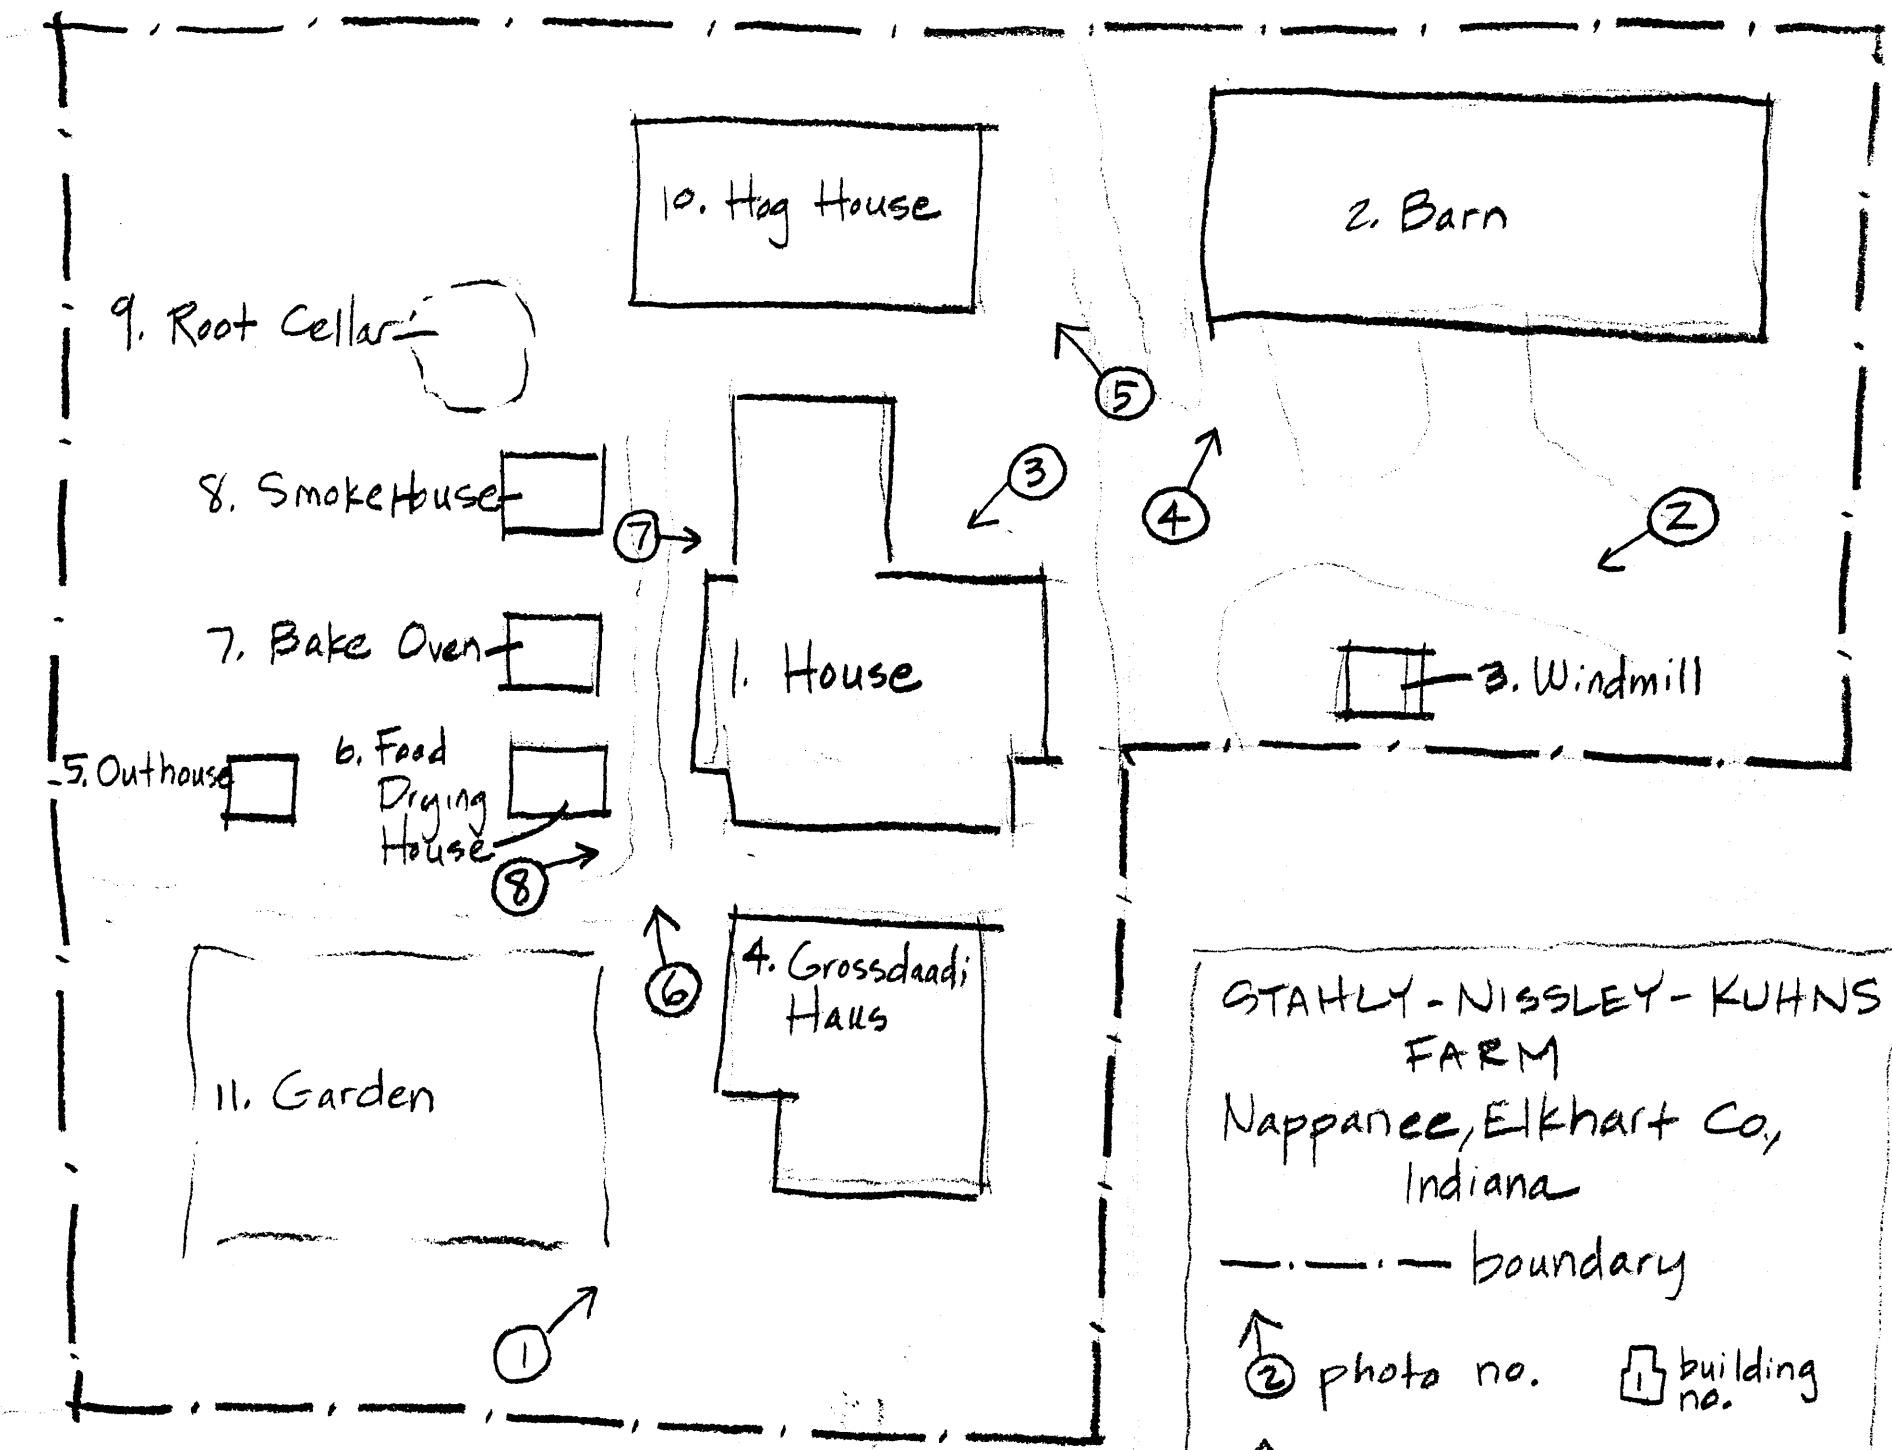 10. Hog House
2. Barn
9. Root Cellar
5
3
4
8. SmokeHouse
2
7
7. Bake Oven
1. House
3. Windmill
5. Outhouse
6. Food
Drying
House
8
4. Grossdaadi
Haus
6
11. Garden
1
STAHLY-NISSLEY-KUHNS
FARM
Nappanee, Elkhart Co.,
Indiana
boundary
2 photo no.
1 building
no.